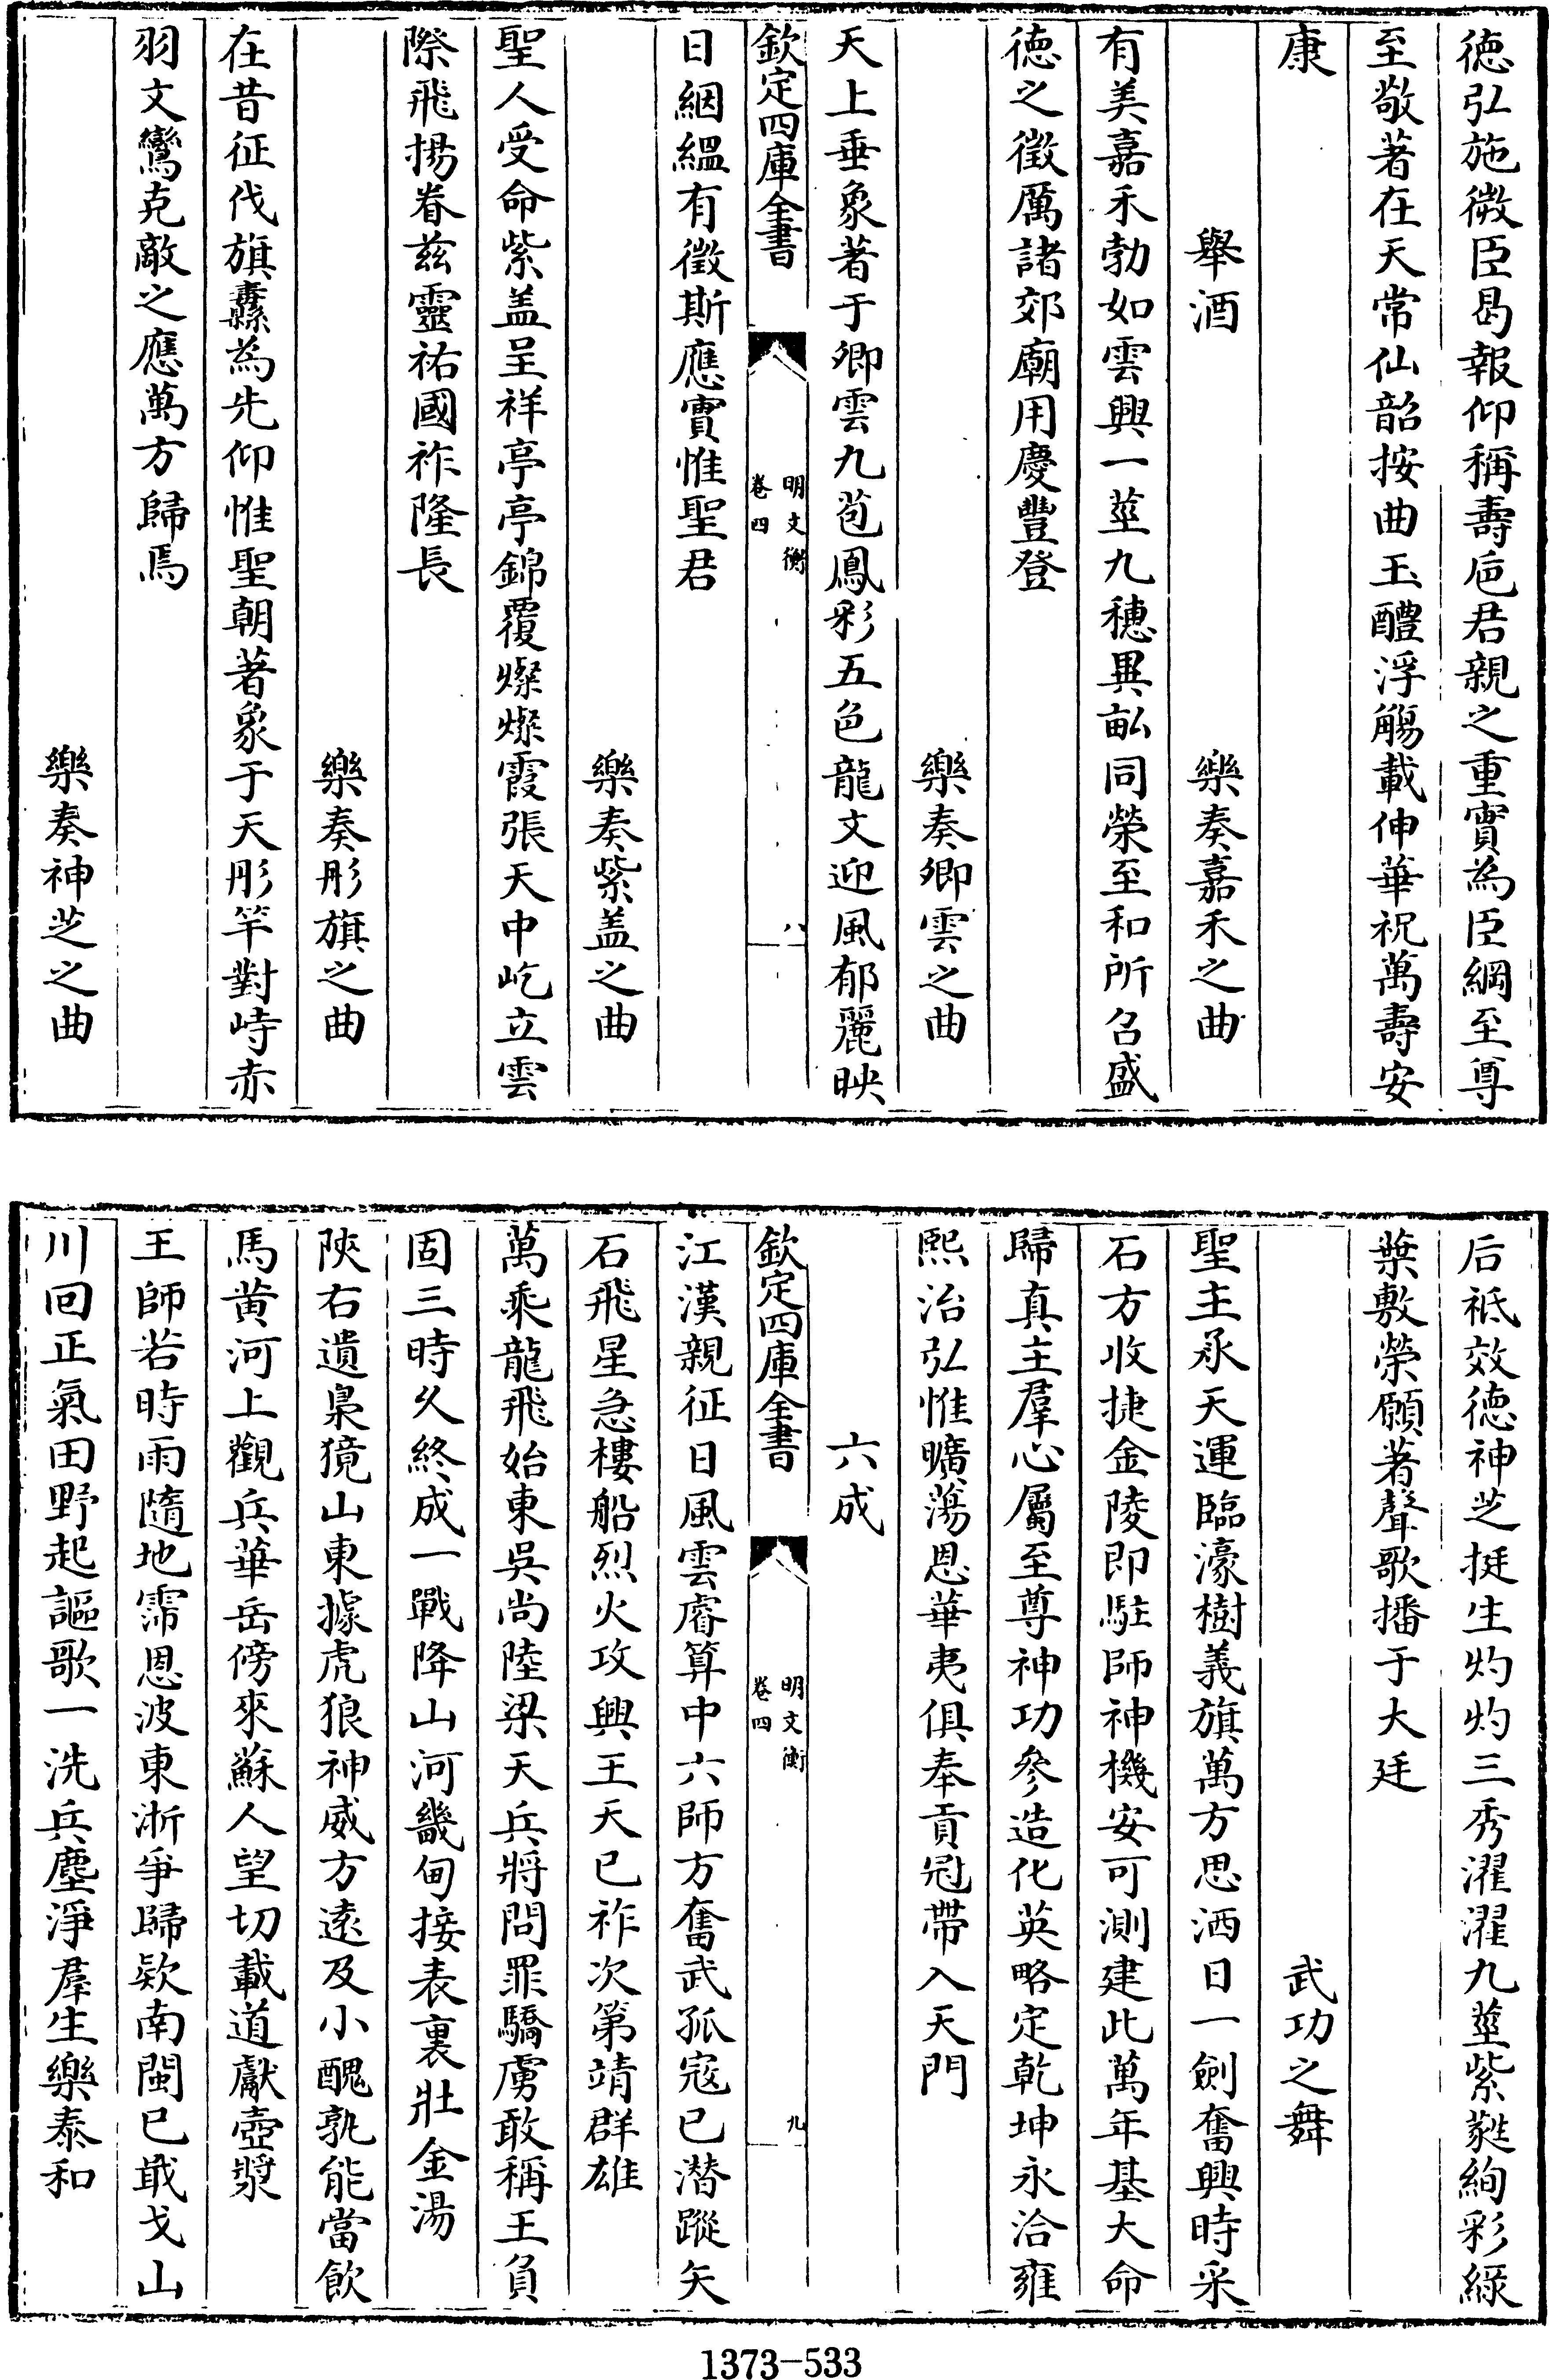 德弘施微臣曷報仰稱壽巵君親之重實為臣綱至尊
至敬著在天常仙韶按曲玉醴浮觴載伸華祝萬壽安
康
舉酒　樂奏嘉禾之曲
有美嘉禾勃如雲興一莖九穗異畝同榮至和所召盛
德之徵薦諸郊廟用慶豐登
樂奏卿雲之曲
天上垂象著于卿雲九苞鳳彩五色龍文迎風郁麗映
欽定四庫全書　明文衡　卷四　八
日絪縕有徵斯應實惟聖君
樂奏紫蓋之曲
聖人受命紫盖呈祥亭亭錦覆燦燦霞張天中屹立雲
際飛揚眷兹靈祐國祚隆長
樂奏彤旗之曲
在昔征伐旗纛為先仰惟聖朝著象于天彤竿對峙赤
羽文鸞克敵之應萬方歸焉
樂奏神芝之曲
后祗效德神芝挺生灼灼三秀濯濯九莖紫蕤絢彩綠
葉敷榮願著聲歌播于大廷
武功之舞
聖主承天運臨濠樹義旗萬方思洒日一劍奮興時采
石方收捷金陵即駐師神機安可測建此萬年基大命
歸真主羣心屬至尊神功參造化英略定乾坤永洽雍
熙治弘惟曠蕩恩華夷俱奉貢冠帶入天門
六成
欽定四庫全書　明文衡　卷四　九
江漢親征日風雲睿算中六師方奮武孤寇已潛蹤矢
石飛星急樓船烈火攻興王天已祚次第靖群雄
萬乘龍飛始東吳尚陸梁天兵將問罪驕虜敢稱王負
固三時久終成一戰降山河畿甸接表裏壯金湯
陜右遺梟獍山東據虎狼神威方遠及小醜孰能當飲
馬黃河上觀兵華岳傍來蘇人望切載道獻壺漿
王師若時雨隨地霈恩波東淅爭歸欵南閩已戢戈山
川回正氣田野起謳歌一洗兵塵淨羣生樂泰和
1373-533